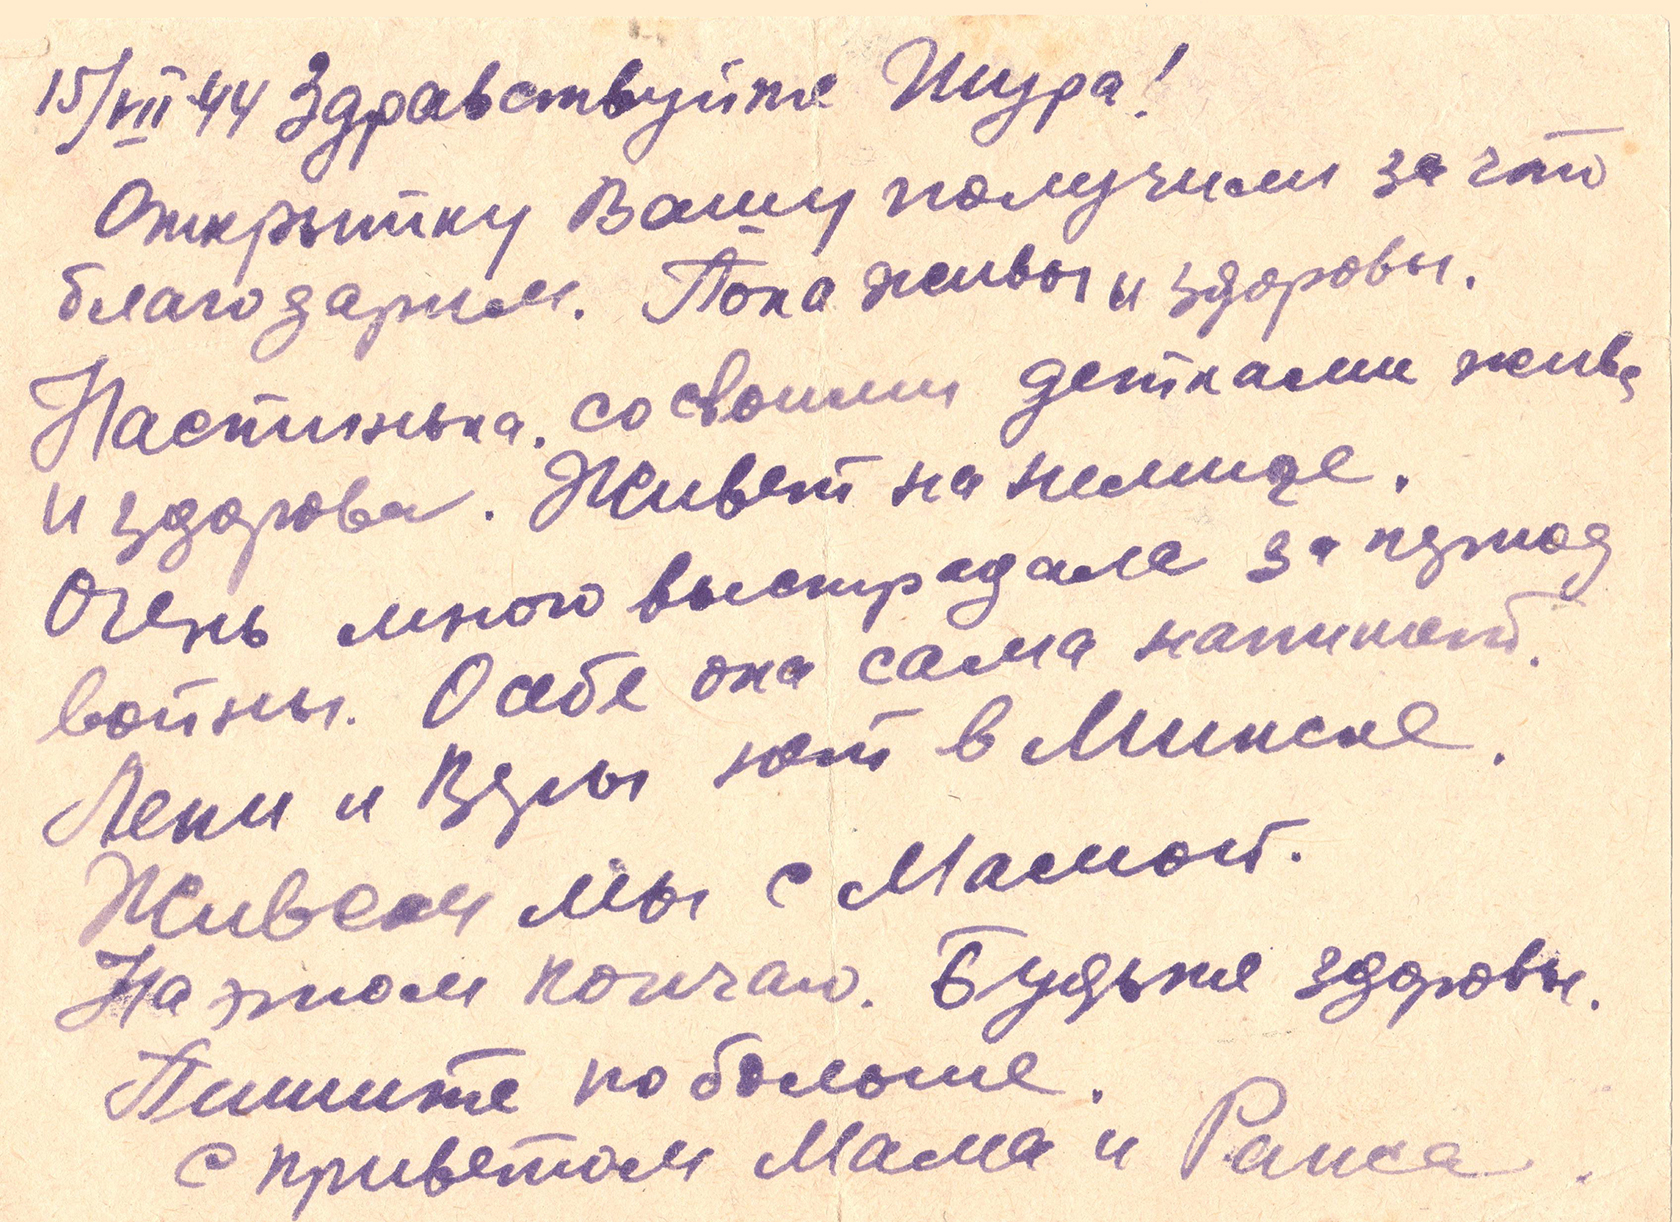 15/VII 44 Здравствуйте Шура!
Открытку Вашу получили за что
благодарим. Пока живы и здоровы.
Настинька. со своими детками жива
и здорова. Живет на
Очень много выстрадала за период
войны. О себе она сама напишет.
Лени и Веры нет в Минске.
Живем мы с Мамой.
На этом кончаю. Будьте здоровы.
Пишите по больше.
С приветом Мама и Раиса.